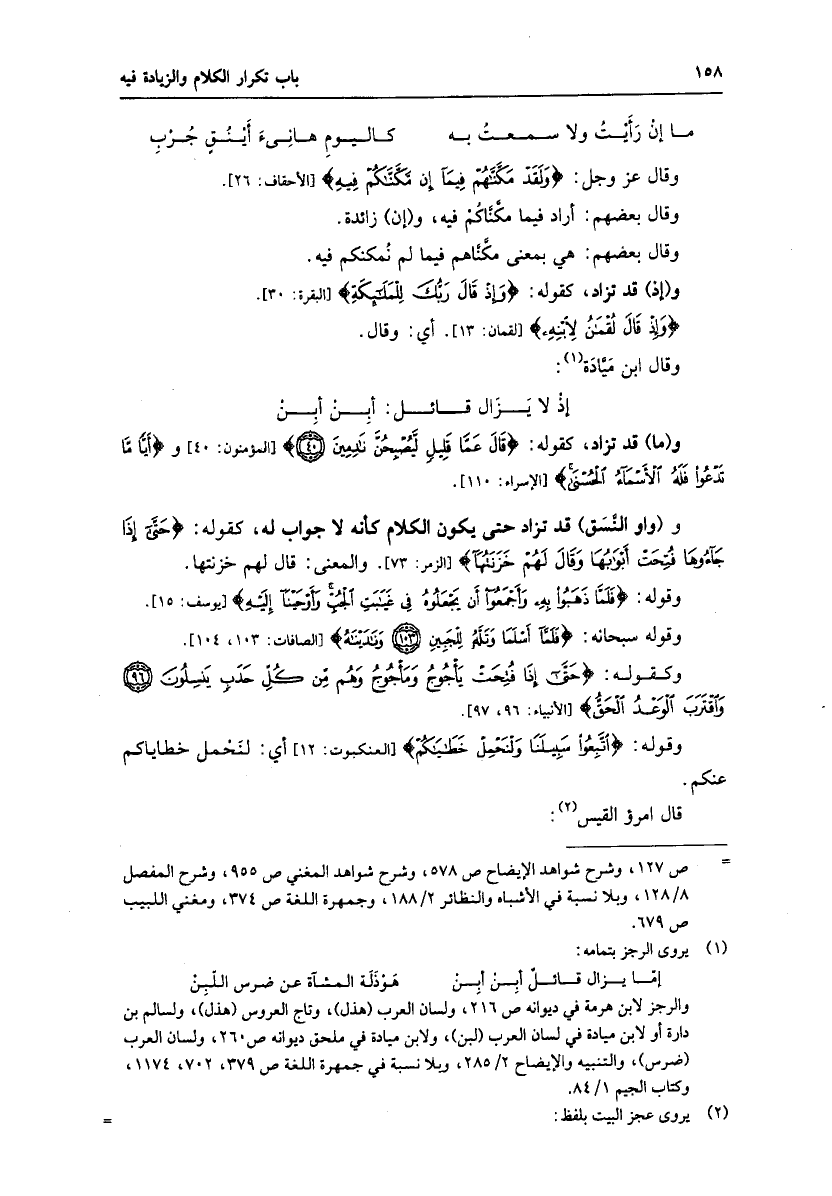 ١٥٨ باب تكرار الكلام والزيادة فيه
ما إنْ رَأَيْتُ ولا سمعتُ به كاليومِ هانىءَ أَيْنُقٍ جُرْبِ
وقال عز وجل: ﴿وَلَقَدْ مَكَّنَّٰهُمْ فِيمَآ إِن مَّكَّنَّٰكُمْ فِيهِ﴾ [الأحقاف: ٢٦].
وقال بعضهم: أراد فيما مكَّنَّاكُمْ فيه، و(إن) زائدة.
وقال بعضهم: هي بمعنى مكَّنَّاهم فيما لم نُمكنكم فيه.
و(إذ) قد تزاد، كقوله: ﴿وَإِذْ قَالَ رَبُّكَ لِلْمَلَٰٓئِكَةِ﴾ [البقرة: ٣٠].
﴿وَإِذْ قَالَ لُقْمَٰنُ لِٱبْنِهِۦ﴾ [لقمان: ١٣]. أي: وقال.
وقال ابن مَيَّادَة(١):
إذْ لا يَزَال قائل: أبِنْ أبِنْ
و(ما) قد تزاد، كقوله: ﴿قَالَ عَمَّا قَلِيلٍ لَّيُصْبِحُنَّ نَٰدِمِينَ ٤٠﴾ [المؤمنون: ٤٠] و ﴿أَيًّا مَّا
تَدْعُوا۟ فَلَهُ ٱلْأَسْمَآءُ ٱلْحُسْنَىٰ﴾ [الإسراء: ١١٠].
و (واو النَّسَق) قد تزاد حتى يكون الكلام كأنه لا جواب له، كقوله: ﴿حَتَّىٰٓ إِذَا
جَآءُوهَا فُتِحَتْ أَبْوَٰبُهَا وَقَالَ لَهُمْ خَزَنَتُهَآ﴾ [الزمر: ٧٣]. والمعنى: قال لهم خزنتها.
وقوله: ﴿فَلَمَّا ذَهَبُوا۟ بِهِۦ وَأَجْمَعُوٓا۟ أَن يَجْعَلُوهُ فِى غَيَٰبَتِ ٱلْجُبِّ وَأَوْحَيْنَآ إِلَيْهِ﴾ [يوسف: ١٥].
وقوله سبحانه: ﴿فَلَمَّآ أَسْلَمَا وَتَلَّهُۥ لِلْجَبِينِ ١٠٣ وَنَٰدَيْنَٰهُ﴾ [الصافات: ١٠٣، ١٠٤].
وكقوله: ﴿حَتَّىٰٓ إِذَا فُتِحَتْ يَأْجُوجُ وَمَأْجُوجُ وَهُم مِّن كُلِّ حَدَبٍ يَنسِلُونَ ٩٦
وَٱقْتَرَبَ ٱلْوَعْدُ ٱلْحَقُّ﴾ [الأنبياء: ٩٦، ٩٧].
وقوله: ﴿ٱتَّبِعُوا۟ سَبِيلَنَا وَلْنَحْمِلْ خَطَٰيَٰكُمْ﴾ [العنكبوت: ١٢] أي: لنَحْمل خطاياكم
عنكم.
قال امرؤ القيس(٢):
= ص ١٢٧، وشرح شواهد الإيضاح ص ٥٧٨، وشرح شواهد المغني ص ٩٥٥، وشرح المفصل
٨/ ١٢٨، وبلا نسبة في الأشباه والنظائر ٢/ ١٨٨، وجمهرة اللغة ص ٣٧٤، ومغني اللبيب
ص ٦٧٩.
(١) يروى الرجز بتمامه:
إمّا يزال قائلٌ أبِنْ أبِنْ هَوْذَلَة المشآة عن ضرس اللَّبِنْ
والرجز لابن هرمة في ديوانه ص ٢١٦، ولسان العرب (هذل)، وتاج العروس (هذل)، ولسالم بن
دارة أو لابن ميادة في لسان العرب (لبن)، ولابن ميادة في ملحق ديوانه ص٢٦٠، ولسان العرب
(ضرس)، والتنبيه والإيضاح ٢/ ٢٨٥، وبلا نسبة في جمهرة اللغة ص ٣٧٩، ٧٠٢، ١١٧٤،
وكتاب الجيم ١/ ٨٤.
(٢) يروى عجز البيت بلفظ: =